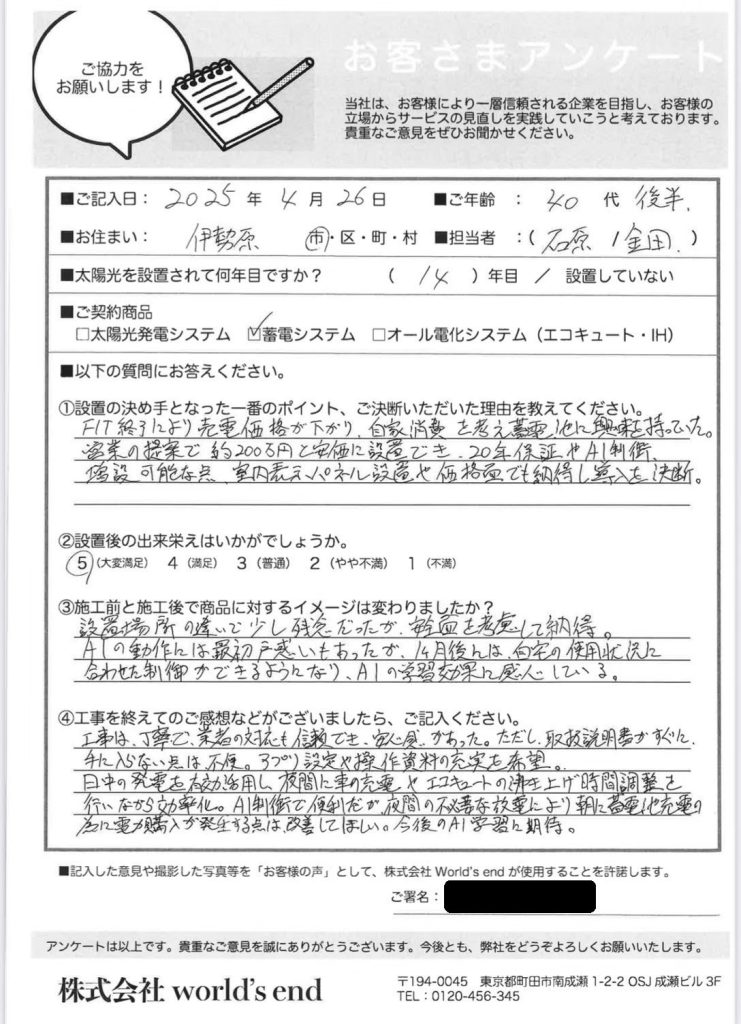 ご協力を
お願いします！
お客さまアンケート
当社は、お客様により一層信頼される企業を目指し、お客様の
立場からサービスの見直しを実践していこうと考えております。
貴重なご意見をぜひお聞かせください。
■ご記入日： 2025 年 4 月 26 日 ■ご年齢 ： 40 代 後半.
■お住まい： 伊勢原 市・区・町・村 ■担当者 ：( 石原 / 金田. )
■太陽光を設置されて何年目ですか？ （ 14 ）年目 ／ 設置していない
■ご契約商品
□太陽光発電システム ☑蓄電システム □オール電化システム（エコキュート・IH）
■以下の質問にお答えください。
①設置の決め手となった一番のポイント、ご決断いただいた理由を教えてください。
FIT終了により売電価格が下がり、自家消費を考え蓄電池に興味を持っていた。
営業の提案で約200万円と安価に設置でき、20年保証やAI制御、
増設可能な点、室内表示パネル設置や価格面でも納得し導入を決断。
②設置後の出来栄えはいかがでしょうか。
5（大変満足） 4（満足） 3（普通） 2（やや不満） 1（不満）
③施工前と施工後で商品に対するイメージは変わりましたか？
設置場所の違いで少し残念だったが、安全面を考慮して納得。
AIの動作には最初戸惑いもあったが、1ヶ月後には、自宅の使用状況に
合わせた制御ができるようになり、AIの学習効果に感心している。
④工事を終えてのご感想などがございましたら、ご記入ください。
工事は、丁寧で、業者の対応も信頼でき、安心感があった。ただし、取扱説明書がすぐに
手に入らない点は、不便。アプリ設定や操作資料の充実を希望。
日中の発電を有効活用し、夜間に車の充電やエコキュートの沸き上げ時間調整を
行いながら効率化。AI制御で便利だが、夜間の不必要な放電により朝に蓄電池充電の
為に電力購入が発生する点は改善してほしい。今後のAI学習に期待。
■記入した意見や撮影した写真等を「お客様の声」として、株式会社 World's end が使用することを許諾します。
ご署名：
アンケートは以上です。貴重なご意見を誠にありがとうございます。今後とも、弊社をどうぞよろしくお願いいたします。
株式会社 world's end
〒194-0045 東京都町田市南成瀬 1-2-2 OSJ 成瀬ビル 3F
TEL：0120-456-345